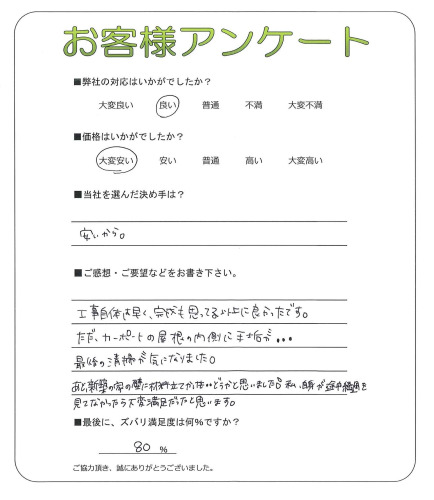 お客様アンケート
■弊社の対応はいかがでしたか？
大変良い 良い 普通 不満 大変不満
■価格はいかがでしたか？
大変安い 安い 普通 高い 大変高い
■当社を選んだ決め手は？
安いから。
■ご感想・ご要望などをお書き下さい。
工事自体は早く、完成も思ってる以上に良かったです。
ただ、カーポートの屋根の内側に手垢が...
最後の清掃が気になりました。
あと、新築の家の壁に材料立てかけはどうかと思いました。私、嫁が途中経過を
見てなかったら大変満足だったと思います。
■最後に、ズバリ満足度は何%ですか？
80 %
ご協力頂き、誠にありがとうございました。